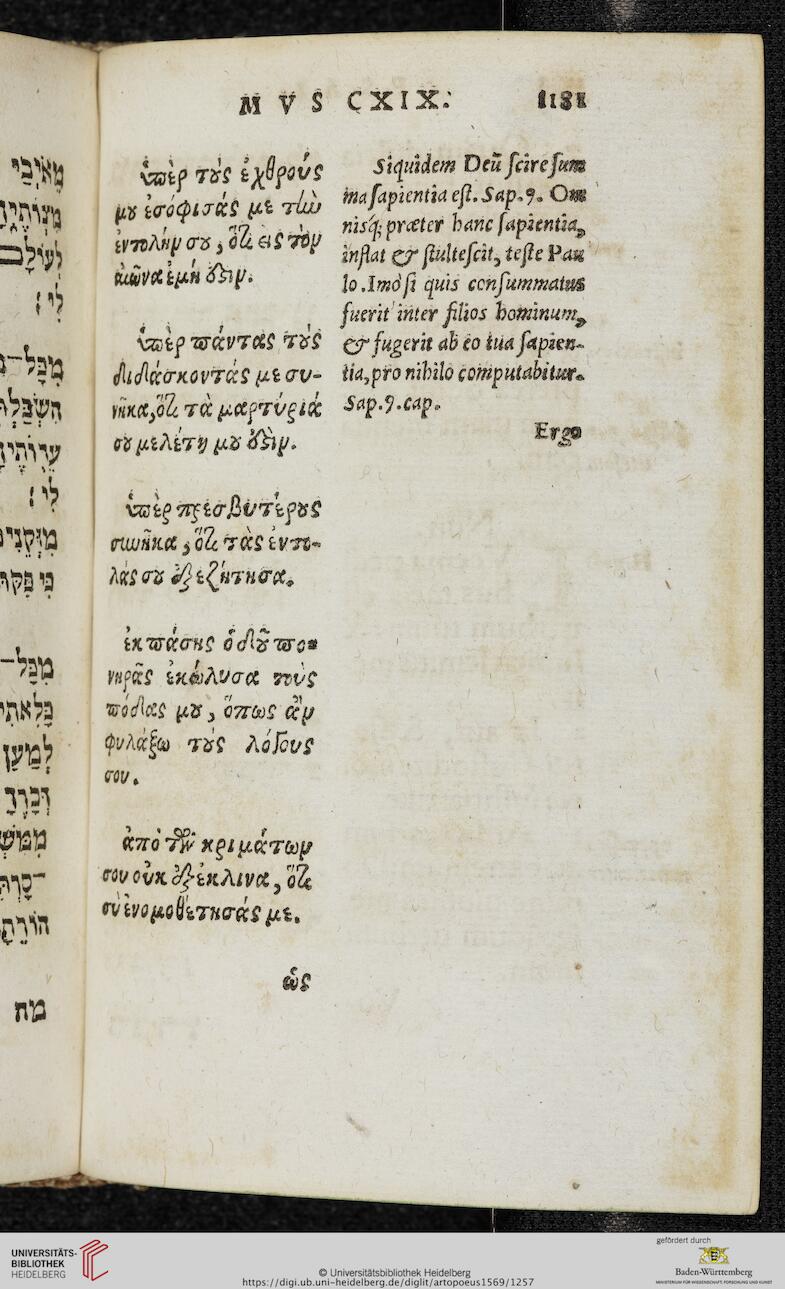 MVS CXIX.
1181
מֵאֹיְבַי
לְעוֹלָם
לִי׃
לִי׃
כִּי
לְמַעַן
דְּבָרֶךָ
מה
ὑπὲρ τοὺς ἐχθρούς
μου ἐσόφισάς με τὴν
ἐντολήν σου, ὅτι εἰς τὸν
αἰῶνα ἐμή ὅϛιν.
ὑπὲρ πάντας τοὺς
διδάσκοντάς με συ-
νῆκα, ὅτι τὰ μαρτύριά
σου μελέτη μου ὅϛίν.
ὑπὲρ πρεσβυτέρους
συνῆκα, ὅτι τὰς ἐντο-
λάς σου ἐξεζήτησα.
ἐκ πάσης ὁδοῦ πο-
νηρᾶς ἐκώλυσα τοὺς
πόδας μου, ὅπως ἂν
φυλάξω τοὺς λόγους
σου.
ἀπὸ τῶν κριμάτων
σου οὐκ ἐξέκλινα, ὅτι
σὺ ἐνομοθέτησάς με.
ὡς
Siquidem Deũ scire sum
ma sapientia est. Sap. 9. Om
nisq; præter hanc sapientia,
inflat & stultescit, teste Pau
lo. Imò si quis consummatus
fuerit inter filios hominum,
& fugerit ab eo tua sapien-
tia, pro nihilo computabitur.
Sap. 9. cap.
Ergo
UNIVERSITÄTS-
BIBLIOTHEK
HEIDELBERG
© Universitätsbibliothek Heidelberg
https://digi.ub.uni-heidelberg.de/diglit/artopoeus1569/1257
gefördert durch
Baden-Württemberg
MINISTERIUM FÜR WISSENSCHAFT, FORSCHUNG UND KUNST